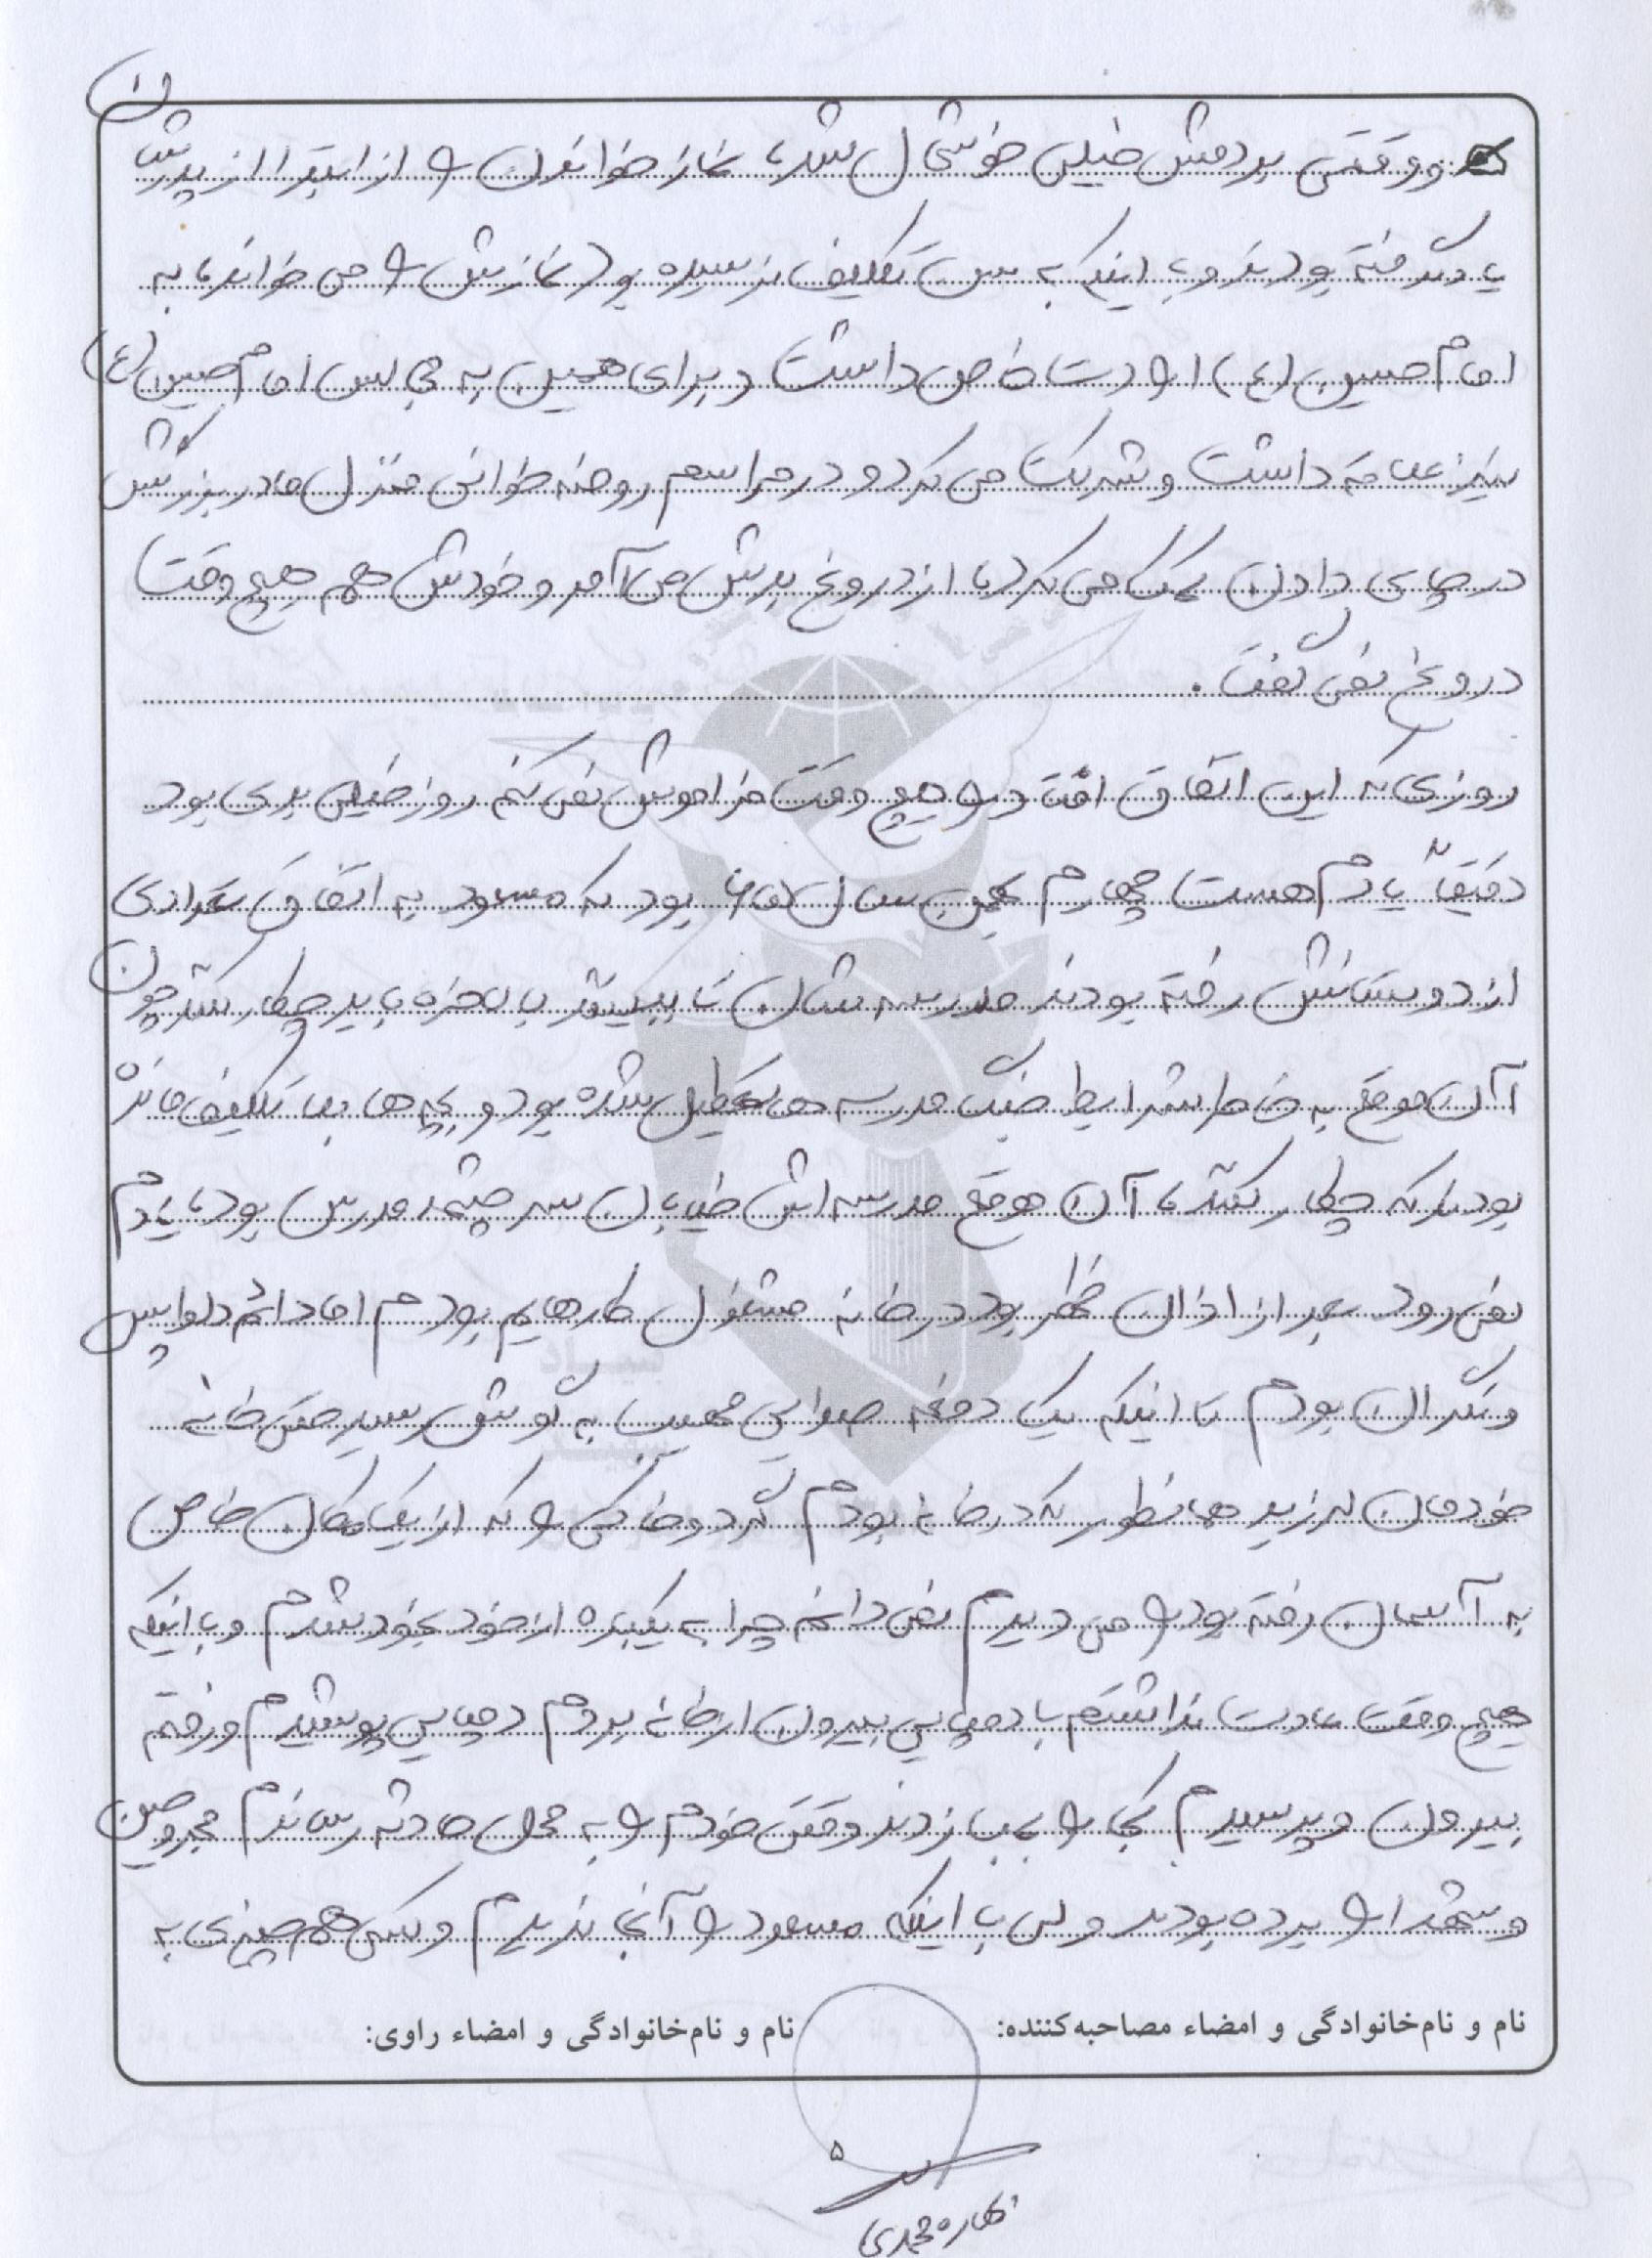 و وقتی بردمش خیلی خوشحال شد، نماز خواندن را از ابتدا از پدرشان
یاد گرفته بودند و با اینکه به سن تکلیف نرسیده بود نمازش را می خواند، به
امام حسین (ع) ارادت خاص داشت و برای همین به مجالس امام حسین (ع)
نیز علاقه داشت و شرکت می کرد و در مراسم روضه خوانی منزل مادربزرگش
در چای دادن کمک می کرد، از دروغ بدش می آمد و خودش هم هیچ وقت
دروغ نمی گفت.
روزی که این اتفاق افتاد را هیچ وقت فراموش نمی کنم روز خیلی بدی بود
دقیقاً یادم هست چهارم بهمن سال ۶۵ بود که مسعود به اتفاق تعدادی
از دوستانش رفته بودند مدرسه شان تا ببینند بالاخره باید چکار کنند چون
آن موقع به خاطر شرایط جنگ مدرسه ها تعطیل شده بود و بچه ها بلاتکلیف مانده
بودند که چکار کنند، آن موقع مدرسه اش خیابان سرچشمه، مدرس بود، یادم
نمی رود بعد از اذان ظهر بود در خانه مشغول کارهایم بودم اما دائم دلواپس
و نگران بودم تا اینکه یک دفعه صدایی مهیب به گوش رسید حتی خانه
خودمان لرزید همانطور که در خانه بودم گرد و خاکی را که از یک مکان خاص
به آسمان رفته بود را می دیدم نمی دانم چرا به یکباره از خود بیخود شدم و با اینکه
هیچ وقت عادت نداشتم با دمپایی بیرون از خانه بروم دمپایی پوشیدم و رفتم
بیرون و پرسیدم کجا را بمب زدند وقتی خودم را به محل حادثه رساندم مجروحین
و شهدا را برده بودند ولی با اینکه مسعود را آنجا ندیدم و کسی هم چیزی به
نام و نام‌خانوادگی و امضاء مصاحبه‌کننده: نام و نام‌خانوادگی و امضاء راوی:
۵
محمدی